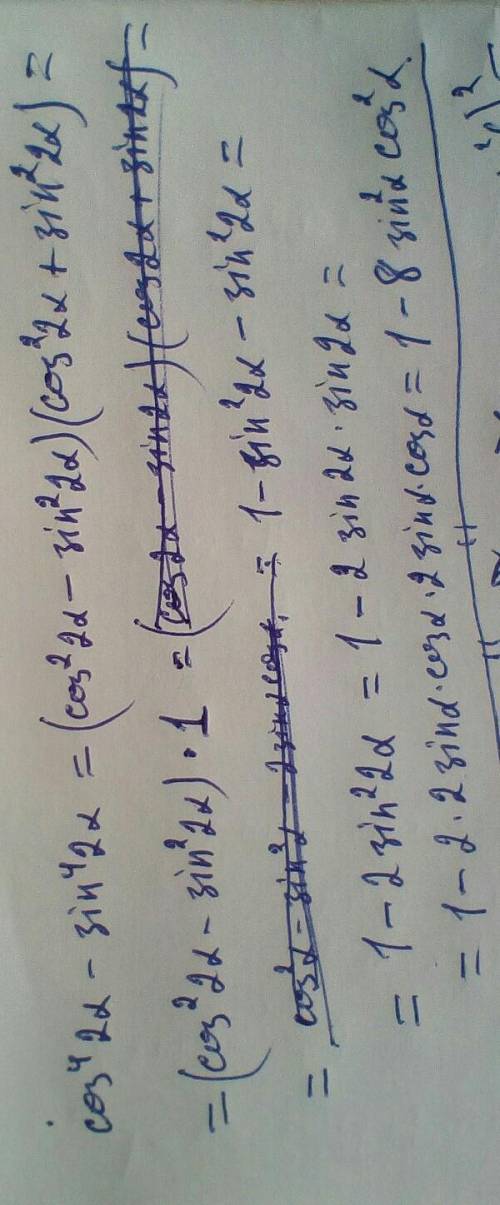 cos⁴2α − sin⁴2α = (cos²2α − sin²2α)(cos²2α + sin²2α) =
= (cos²2α − sin²2α) · 1 = (cos2α − sin2α)(cos2α + sin2α) =
= cos²α − sin²α − 2sinα cosα. = 1 − sin²2α − sin²2α =
= 1 − 2 sin²2α = 1 − 2 sin2α · sin2α =
= 1 − 2 · 2 sinα · cosα · 2 sinα · cosα = 1 − 8 sin²α cos²α.